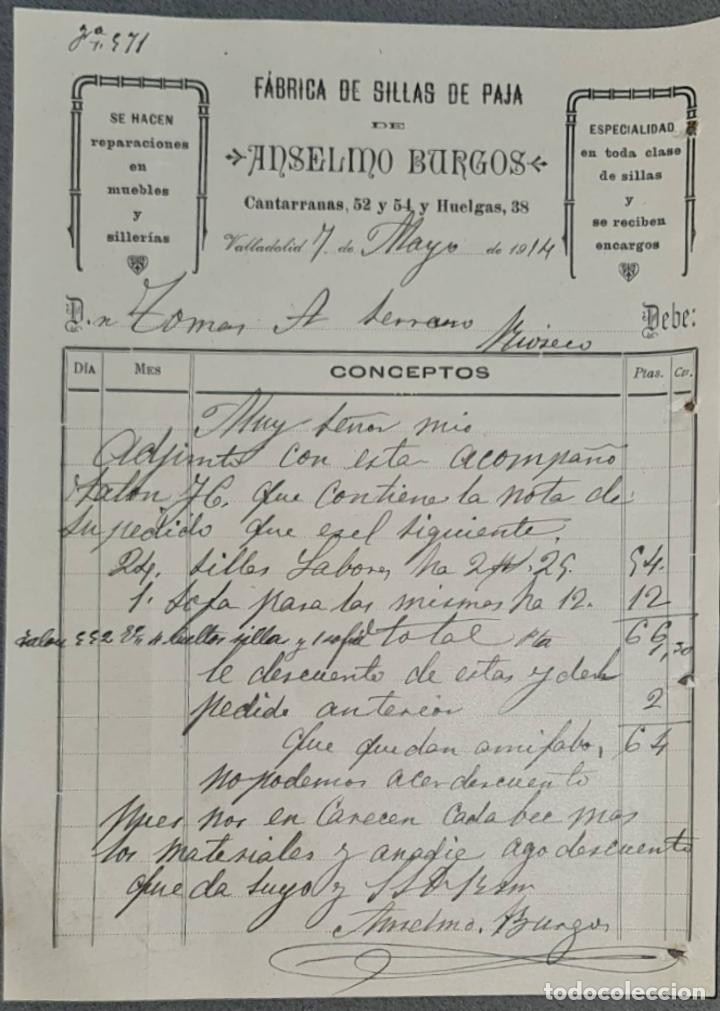 Fª. 571
FÁBRICA DE SILLAS DE PAJA
DE
ANSELMO BURGOS
Cantarranas, 52 y 54 y Huelgas, 38
SE HACEN
reparaciones
en
muebles
y
sillerías
ESPECIALIDAD
en toda clase
de sillas
y
se reciben
encargos
Valladolid 7 de Mayo de 1914
D.n Tomas A Serrano
Rioseco
Debe:
DÍA MES CONCEPTOS Ptas. Cs.
Muy señor mio
Adjunto con esta acompaño
talon que contiene la nota de
su pedido que es el siguiente.
24. sillas Labores ha 2 25. 54.
1. Sofa para las mismas ha 12. 12
talon 552 4 bultos silla y 1 sofa
total Pta 66
1,30
le descuento de estas y del
pedido anterior 2
que quedan amifabor, 64
no podemos acer descuento
pues nos en Carecen cada bec mas
los materiales y anadie ago descuento
queda suyo y
Anselmo. Burgos
todocoleccion.net